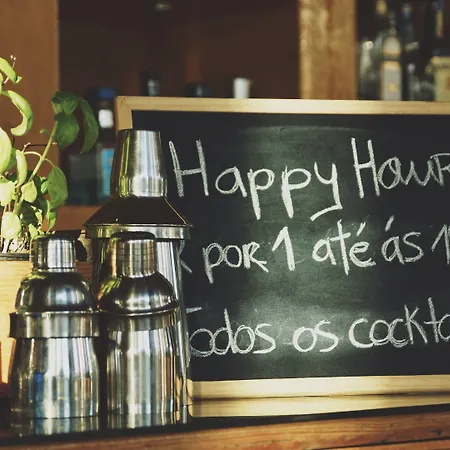 Happy Hour
por 1 até ás 1
Todos os cockt